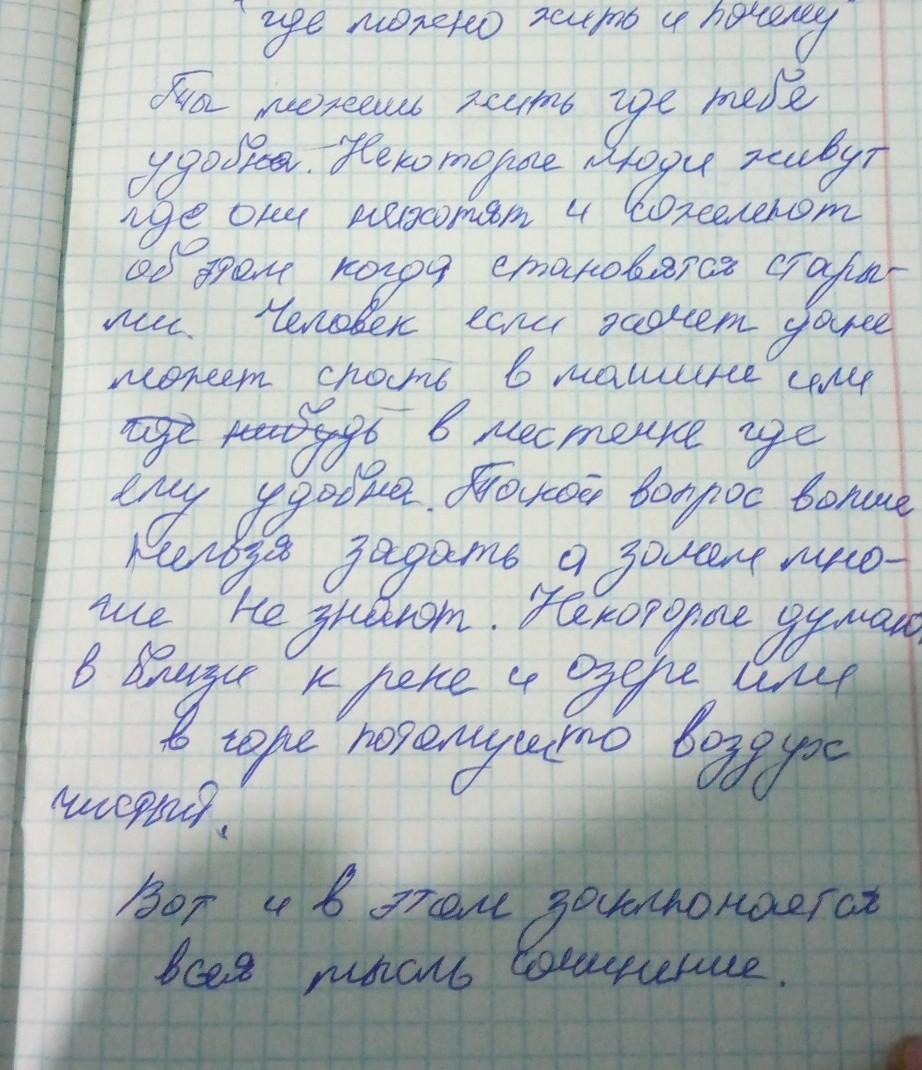 "где можно жить и почему"
Ты можешь жить где тебе
удобна. Некоторые люди живут
где они нехотят и сожелеют
об этом когда становятся стары-
ми. Человек если хочет даже
может спать в машине или
где нибудь в местечке где
ему удобна. Такой вопрос вапше
нельзя задать а зачем мно-
гие не знают. Некоторые думают
в близи к реке и озере или
в горе потомушто воздух
чистый.
Вот и в этом заключается
всея мысль сочинение.